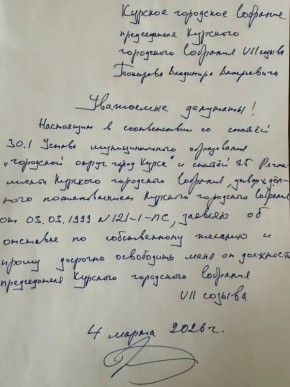 Курское городское Собрание
председателя Курского
городского Собрания VII созыва
Токарева Владимира Валериевича
Уважаемые депутаты!
Настоящим в соответствии со статьёй
30.1 Устава муниципального образования
"Городской округ город Курск" и статьёй 25 Регла-
мента Курского городского Собрания, утверждён-
ного постановлением Курского городского Собрания
от 03.03.1999 №121-1-ПС, заявляю об
отставке по собственному желанию и
прошу досрочно освободить меня от должности
председателя Курского городского Собрания
VII созыва
4 марта 2026 г.